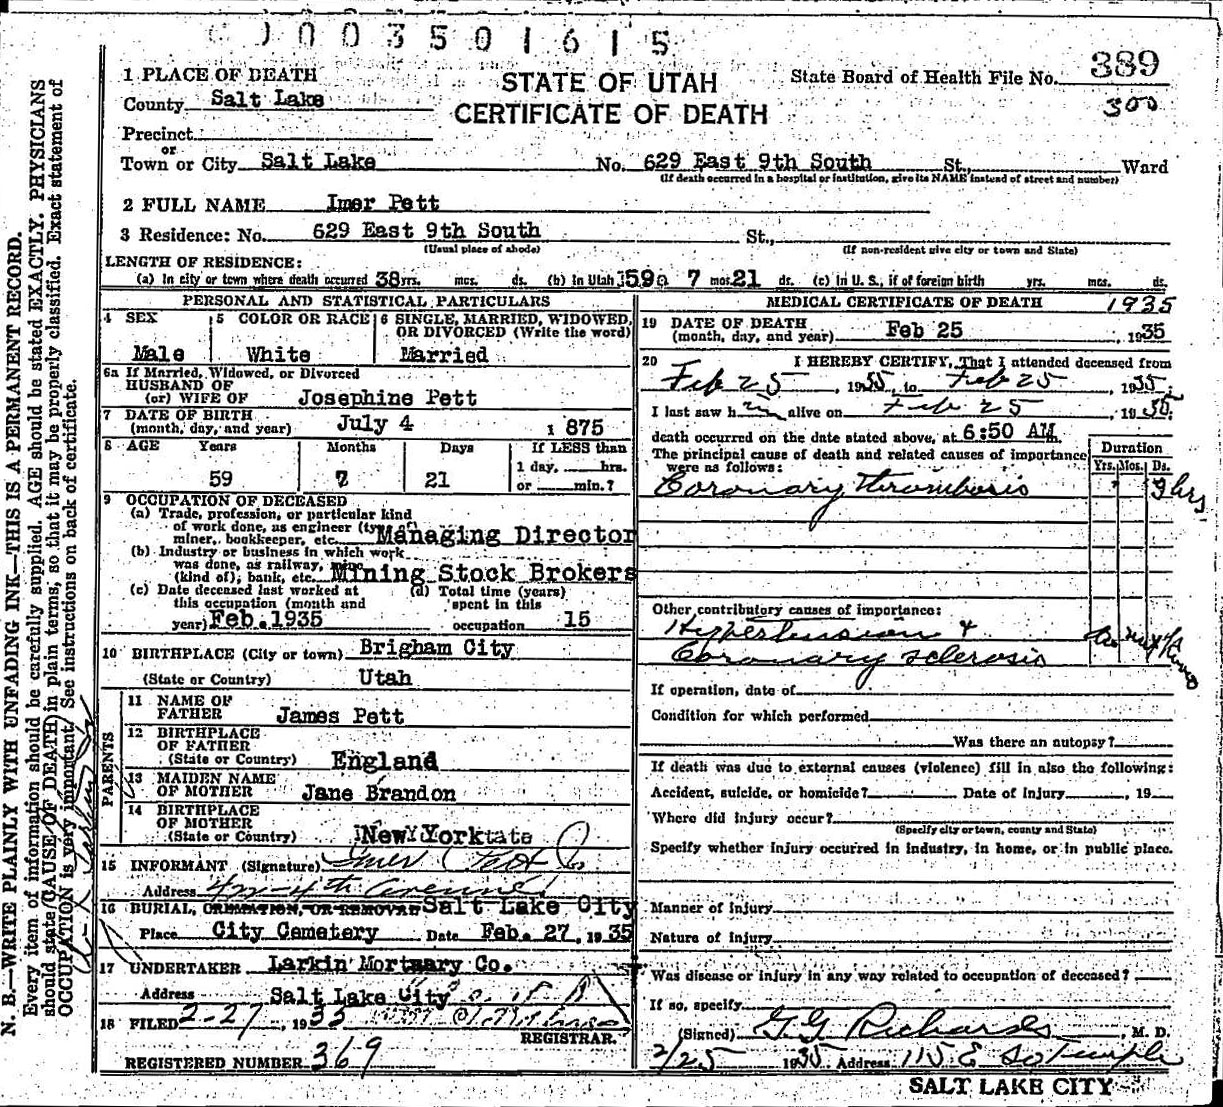 0 0 0 3 5 0 1 6 1 5
1 PLACE OF DEATH
STATE OF UTAH
CERTIFICATE OF DEATH
State Board of Health File No. 389
300
County Salt Lake
Precinct
or
Town or City Salt Lake No. 629 East 9th South St., Ward
(If death occurred in a hospital or institution, give its NAME instead of street and number)
2 FULL NAME Imer Pett
3 Residence: No. 629 East 9th South St.,
(Usual place of abode) (If non-resident give city or town and State)
LENGTH OF RESIDENCE:
(a) In city or town where death occurred 38 yrs. mos. ds. (b) In Utah 59 7 mos. 21 ds. (c) In U. S., if of foreign birth yrs. mos. ds.
PERSONAL AND STATISTICAL PARTICULARS
4 SEX 5 COLOR OR RACE 6 SINGLE, MARRIED, WIDOWED, OR DIVORCED (Write the word)
Male White Married
6a If Married, Widowed, or Divorced
HUSBAND OF
(or) WIFE OF Josephine Pett
7 DATE OF BIRTH
(month, day, and year) July 4 1 875
8 AGE Years Months Days If LESS than
1 day, hrs.
59 7 21 or min.?
9 OCCUPATION OF DECEASED
(a) Trade, profession, or particular kind
of work done, as engineer (type of)
miner, bookkeeper, etc. Managing Director
(b) Industry or business in which work
was done, as railway, mine
(kind of); bank, etc. Mining Stock Brokers
(c) Date deceased last worked at (d) Total time (years)
this occupation (month and spent in this
year) Feb. 1935 occupation 15
10 BIRTHPLACE (City or town) Brigham City
(State or Country) Utah
PARENTS
11 NAME OF
FATHER James Pett
12 BIRTHPLACE
OF FATHER
(State or Country) England
13 MAIDEN NAME
OF MOTHER Jane Brandon
14 BIRTHPLACE
OF MOTHER
(State or Country) New York
15 INFORMANT (Signature) Imer Pett Jr
Address 4th Avenue
16 BURIAL, CREMATION, OR REMOVAL Salt Lake City
Place City Cemetery Date Feb. 27, 1935
17 UNDERTAKER Larkin Mortuary Co.
Address Salt Lake City
18 FILED 2-27, 1935
REGISTRAR.
REGISTERED NUMBER 369
MEDICAL CERTIFICATE OF DEATH 1935
19 DATE OF DEATH
(month, day, and year) Feb 25, 1935
20 I HEREBY CERTIFY, That I attended deceased from
Feb 25, 1935, to Feb 25, 1935.
I last saw him alive on Feb 25, 1935.
death occurred on the date stated above, at 6:50 AM.
The principal cause of death and related causes of importance
were as follows:
Duration
Yrs. Mos. Ds.
Coronary thrombosis 3 hrs
Other contributory causes of importance:
Hypertension &
Coronary sclerosis
If operation, date of
Condition for which performed
Was there an autopsy?
If death was due to external causes (violence) fill in also the following:
Accident, suicide, or homicide? Date of injury, 19
Where did injury occur?
(Specify city or town, county and State)
Specify whether injury occurred in industry, in home, or in public place.
Manner of injury
Nature of injury
Was disease or injury in any way related to occupation of deceased?
If so, specify
(Signed) G G Richards, M. D.
2/25 1935 Address 115 E So Temple
SALT LAKE CITY
N. B.—WRITE PLAINLY WITH UNFADING INK—THIS IS A PERMANENT RECORD.
Every item of information should be carefully supplied. AGE should be stated EXACTLY. PHYSICIANS
should state CAUSE OF DEATH in plain terms, so that it may be properly classified. Exact statement of
OCCUPATION is very important. See instructions on back of certificate.